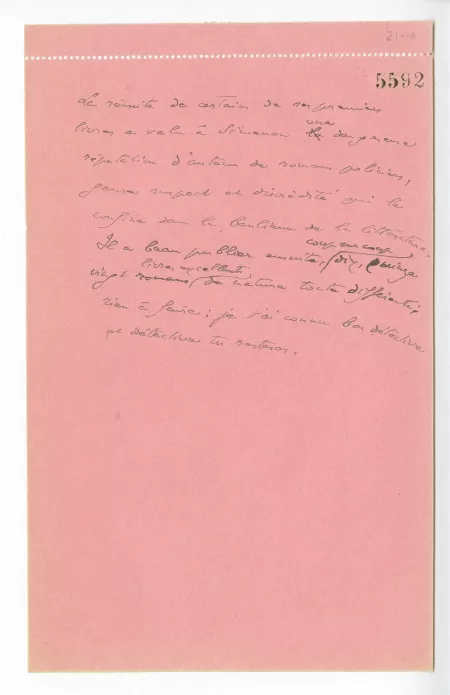 21010
5592
La réussite de certains de ses premiers
livres a valu à Simenon une dangereuse
réputation d'auteur de romans policiers,
genre suspect et discrédité qui le
confine dans la banlieue de la littérature.
Il a beau publier ensuite, coup sur coup, dix, quinze
vingt livres excellents, romans de nature toute différente,
rien à faire : je t'ai connu bon détective
et détective tu resteras.